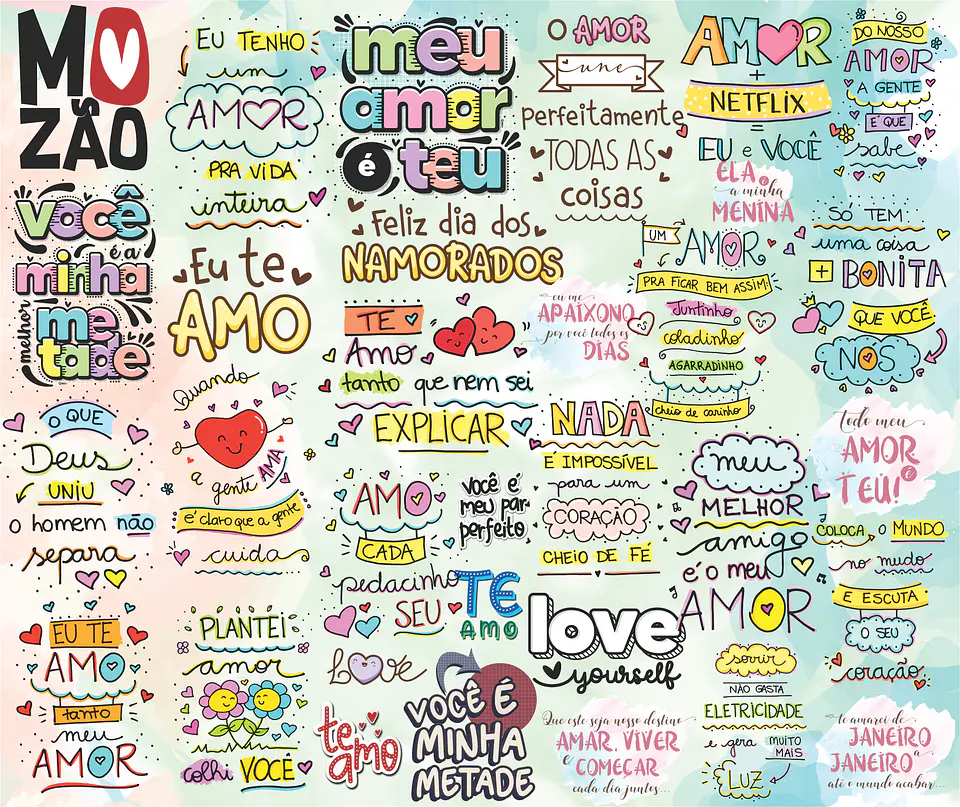 MO
ZÃO
EU TENHO
um
AMOR
PRA VIDA
inteira
meu
amor
é teu
O AMOR
une
perfeitamente
TODAS AS
coisas
AMOR
+
NETFLIX
=
EU e VOCÊ
DO NOSSO
AMOR
A GENTE
É QUE
sabe
você
é a
minha
melhor
me
tade
Eu te
AMO
Feliz dia dos
NAMORADOS
ELA é
a minha
MENINA
UM AMOR
PRA FICAR BEM ASSIM:
Juntinho
coladinho
AGARRADINHO
cheio de carinho
SÓ TEM
uma coisa
+ BONITA
QUE VOCÊ
NÓS
TE
Amo
tanto que nem sei
EXPLICAR
eu me
APAIXONO
por você todos os
DIAS
O QUE
Deus
UNIU
o homem não
separa
Quando
a gente AMA
é claro que a gente
cuida
AMO
CADA
pedacinho
SEU
VOCÊ É
MEU PAR
PERFEITO
NADA
É IMPOSSÍVEL
para um
CORAÇÃO
CHEIO DE FÉ
meu
MELHOR
amigo
é o meu
AMOR
todo meu
AMOR
é
TEU!
COLOCA O MUNDO
no mudo
E ESCUTA
O SEU
coração
EU TE
AMO
tanto
meu
AMOR
PLANTEI
amor
colhi VOCÊ
TE
AMO
Love
te
amo
VOCÊ É
MINHA
METADE
love
yourself
Que este seja nosso destino
AMAR, VIVER
e COMEÇAR
cada dia juntos...
sorrir
NÃO GASTA
ELETRICIDADE
e gera MUITO
MAIS
LUZ
te amarei de
JANEIRO
a
JANEIRO
até o mundo acabar...